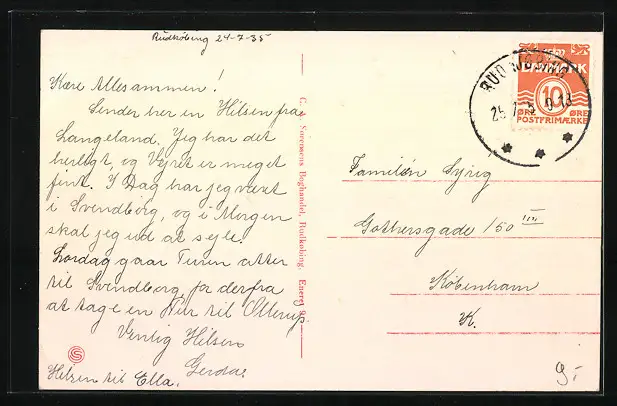 Rudkøbing 24-7-35
Kære Allesammen!
Sender her en Hilsen fra
Langeland. Jeg har det
herligt, og Vejret er meget
fint. I Dag har jeg været
i Svendborg, og i Morgen
skal jeg ud at sejle.
Lørdag gaar Turen atter
til Svendborg, for derfra
at tage en til Otterup
Venlig Hilsen
Gerda.
Hilsen til Ella.
Boghandel, Rudkøbing. Eneret
RUDKØBING
25 7
10
ØRE ØRE
POSTFRIMÆRKE
Familien
Gothersgade 150 III
København
K.
9,-